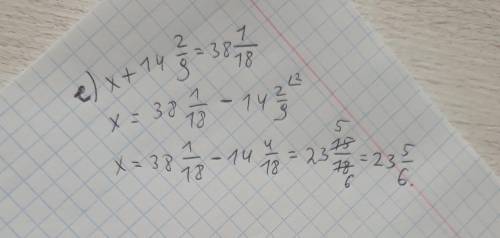 e) x + 14 2/9 = 38 1/18
x = 38 1/18 - 14 2/9 ⌊2
x = 38 1/18 - 14 4/18 = 23 15/18 = 23 5/6.
5
6